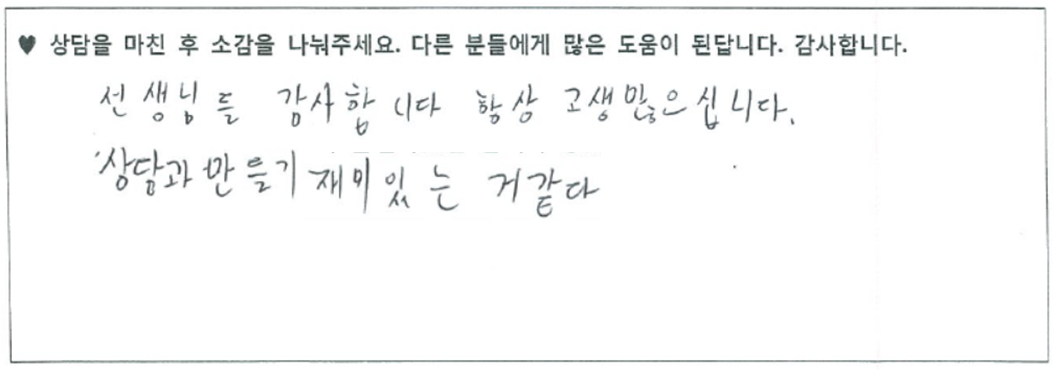 ♥ 상담을 마친 후 소감을 나눠주세요. 다른 분들에게 많은 도움이 된답니다. 감사합니다.
선생님들 감사합니다 항상 고생많으십니다.
상담과 만들기 재미있는 거같다